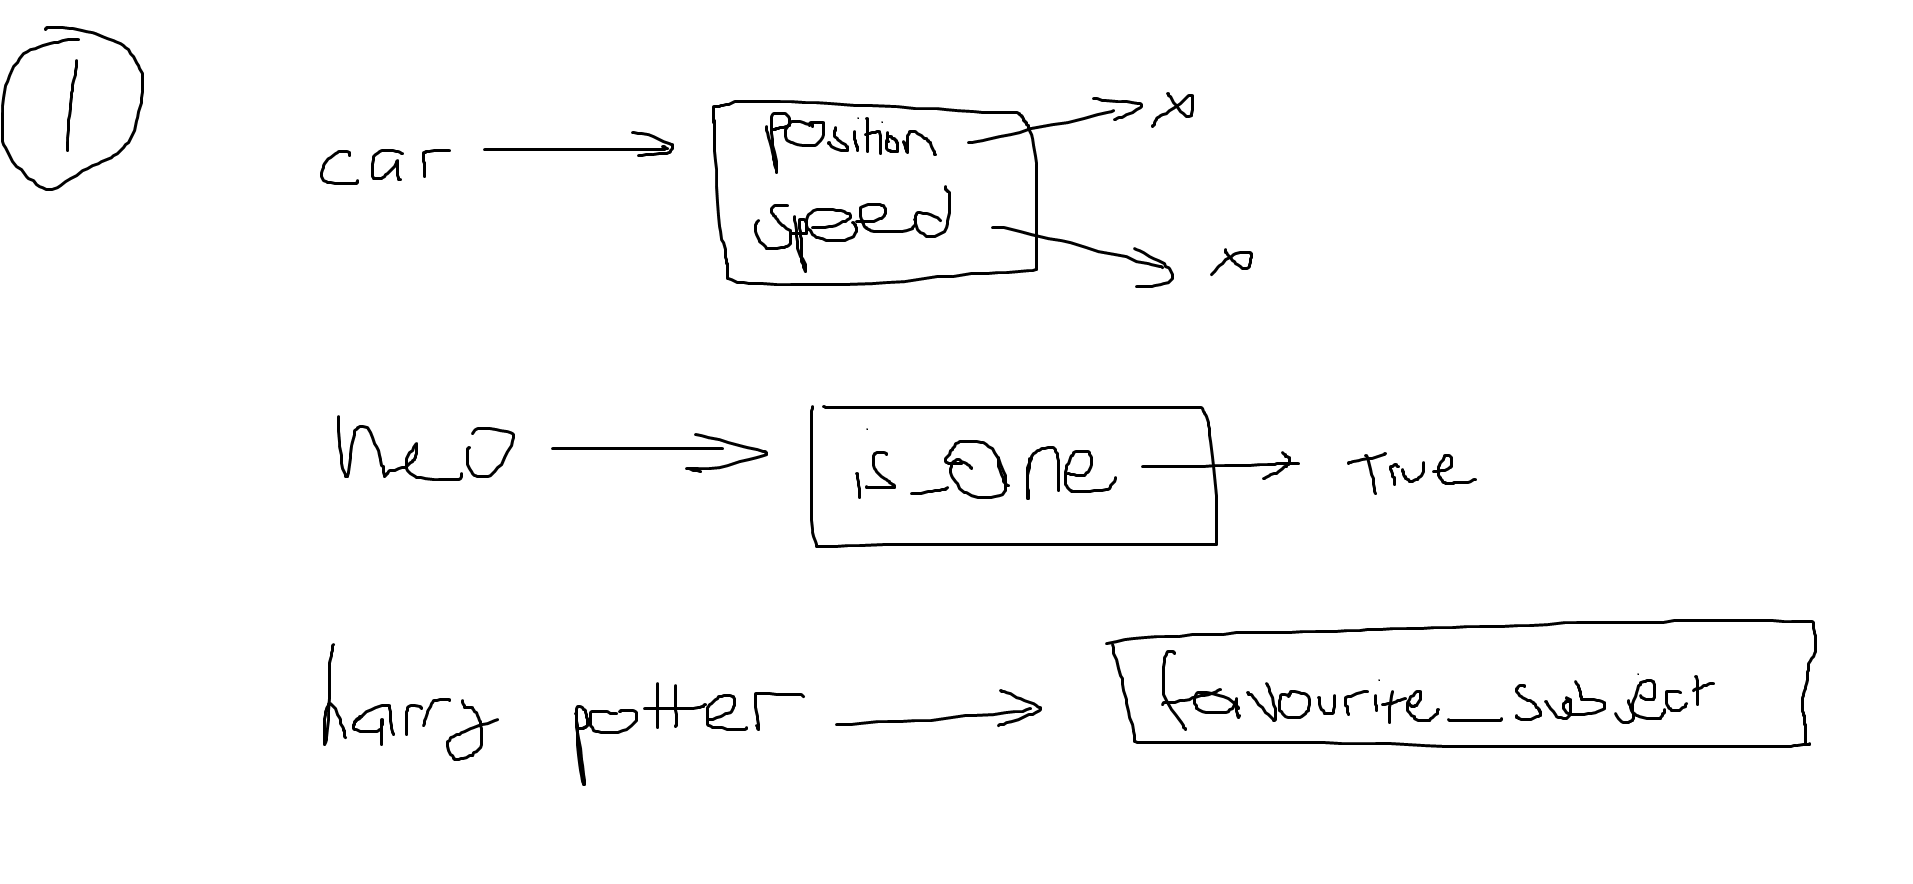 1
car
position
speed
neo
is_One
True
harry potter
favourite_subject